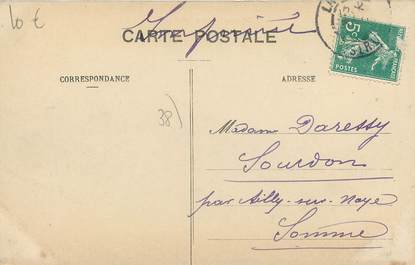 10 €
Imprimé
CARTE POSTALE
CORRESPONDANCE
ADRESSE
5c
POSTES
38)
Madame Daressy
Sourdon
par Ailly-sur-Noye
Somme